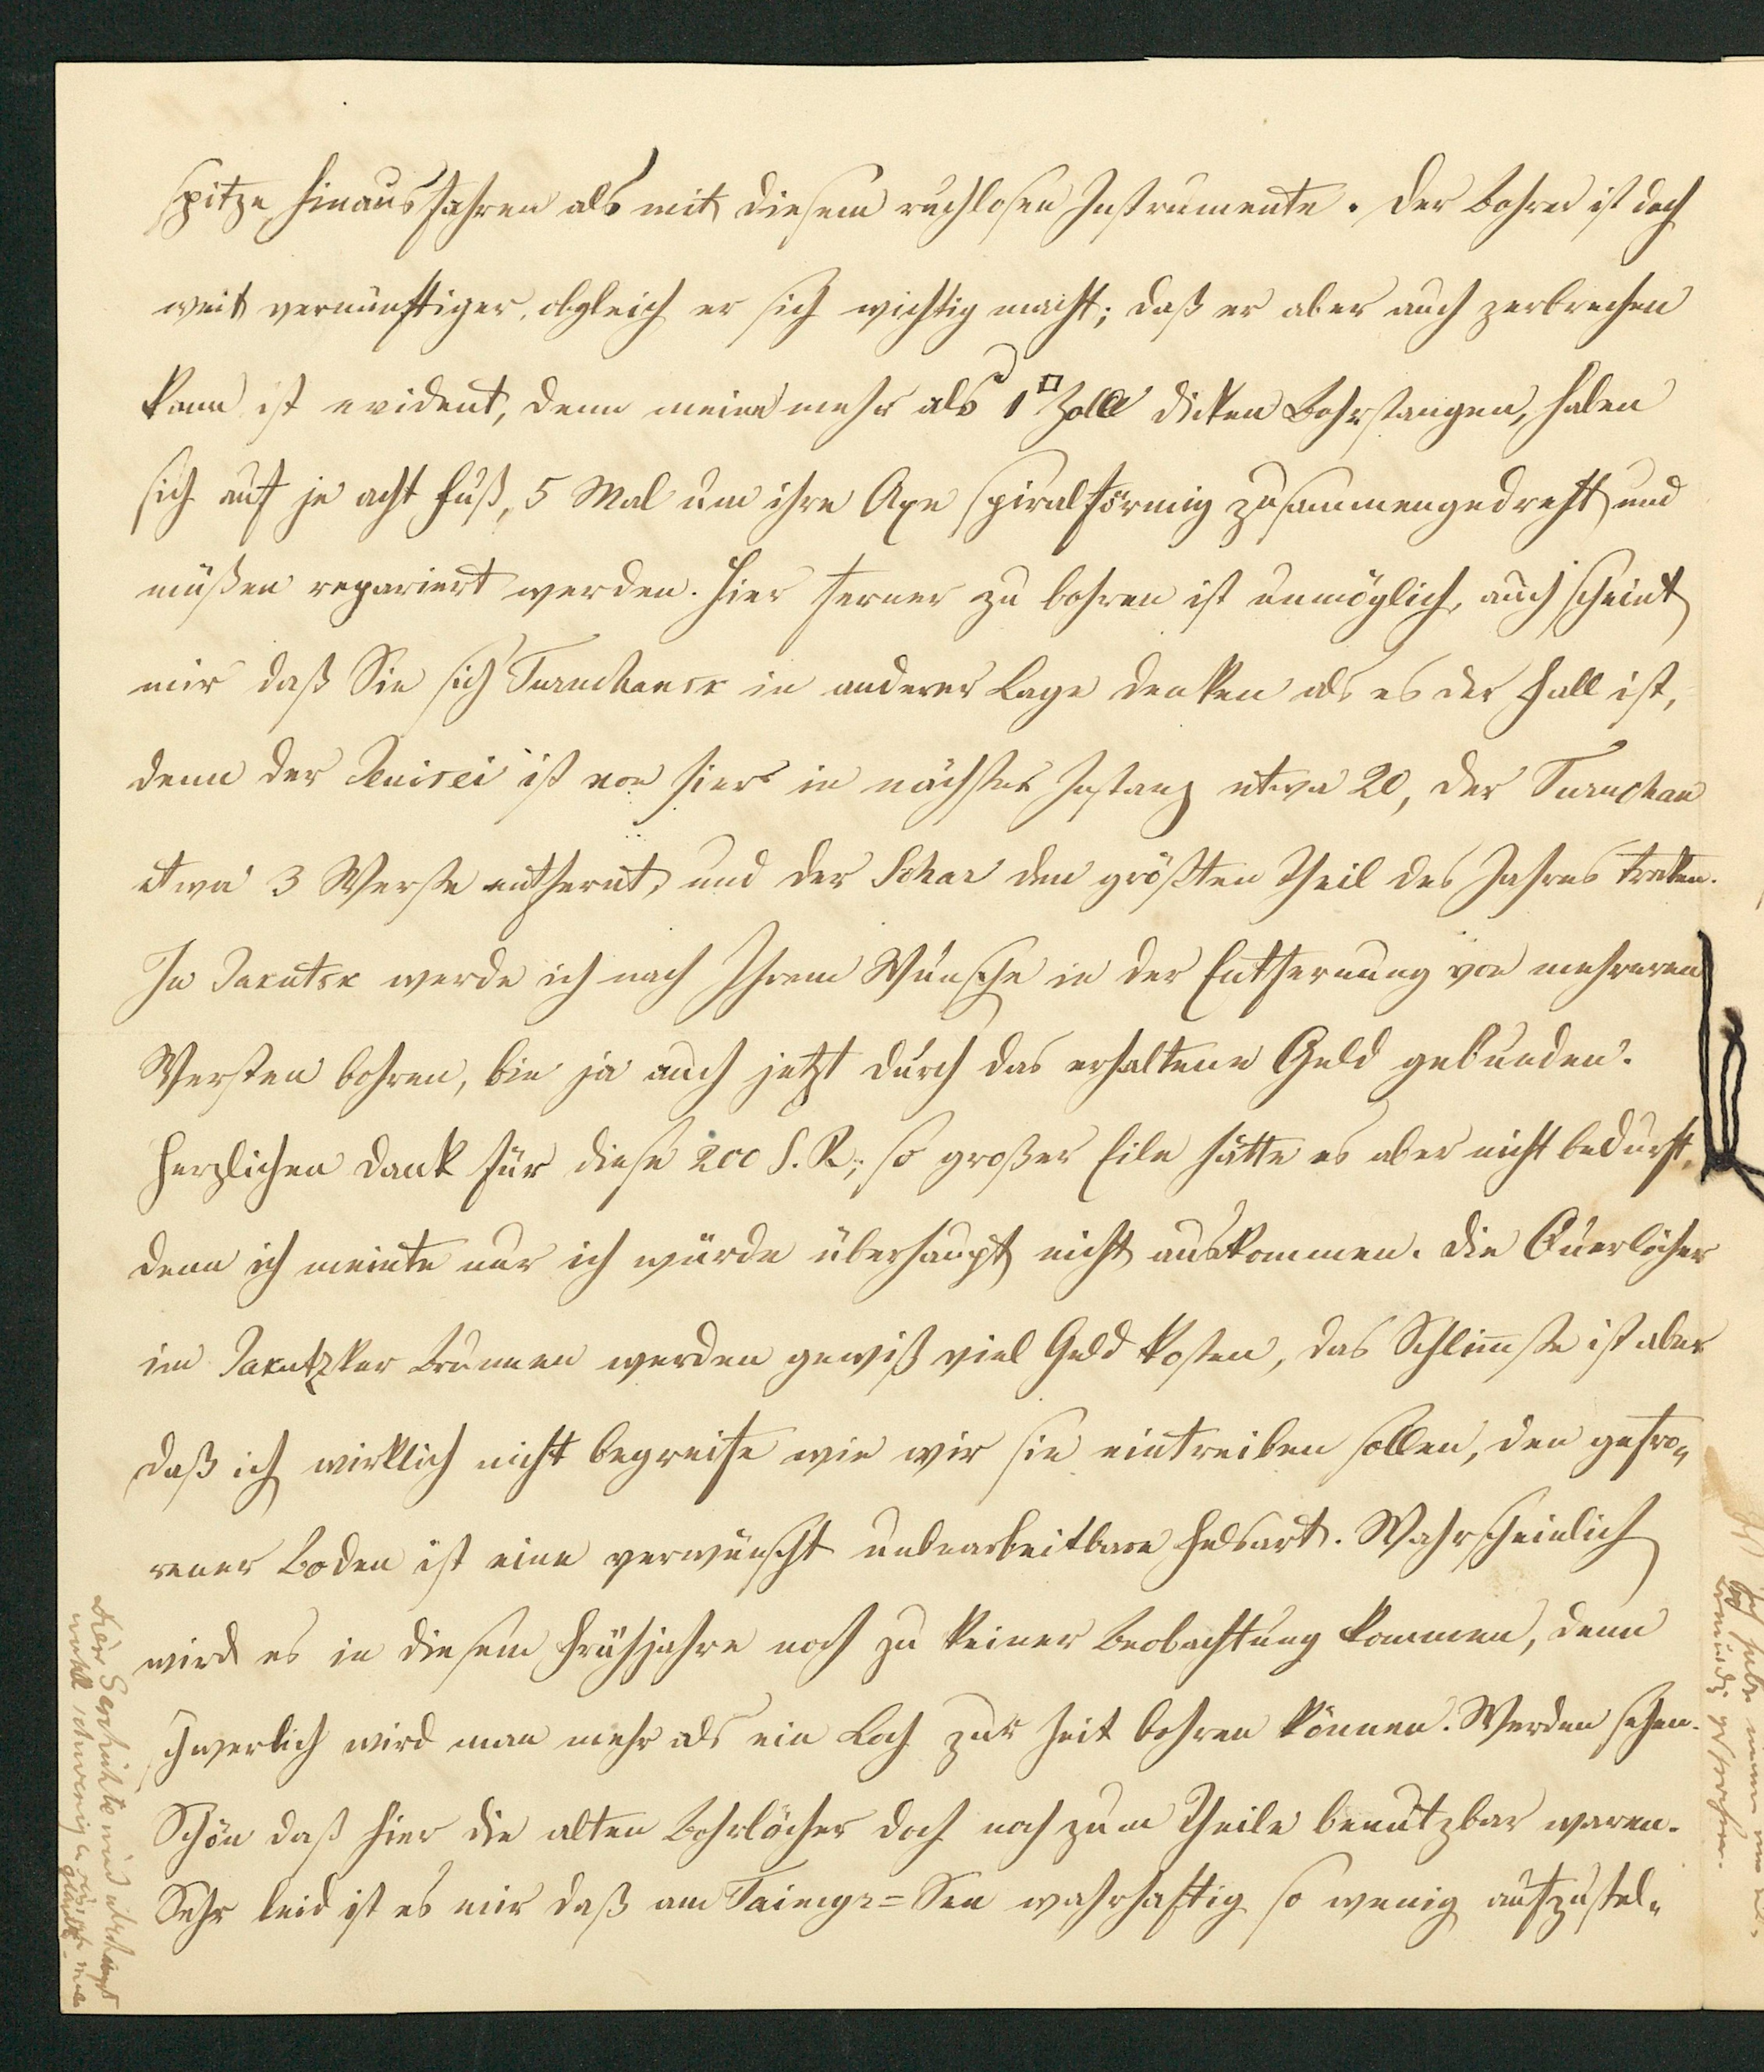 spitze hinausfahren als mit diesem ruchlosen Instrumente. Der Bohrer ist doch
weit vernünftiger, obgleich er sich wichtig macht; daß er aber auch zerbrechen
kann ist evident, denn meine mehr als 1□ Zoll dicken Bohrstangen, haben
sich auf je acht Fuß, 5 Mal um ihre Axe spiralförmig zusammengedreht und
müßen repariert werden. Hier ferner zu bohren ist unmöglich, auch scheint
mir daß Sie sich Turuchansk in anderer Lage denken als es der Fall ist,
denn der Jenisei ist von hier in nächster Instanz etwa 20, der Turuchan
etwa 3 Werste entfernt, und der Schar den größten Theil des Jahres trocken.
In Jakutsk werde ich nach Ihrem Wunsche in der Entfernung von mehreren
Wersten bohren, bin ja auch jetzt durch das erhaltene Geld gebunden.
Herzlichen Dank für diese 200 S. R.; so großer Eile hätte es aber nicht bedurft,
denn ich meinte nur ich würde überhaupt nicht auskommen. Die Querlöcher
im Jakutzker Brunnen werden gewiß viel Geld kosten, das Schlim̄ste ist aber
daß ich wirklich nicht begreife wie wir sie eintreiben sollen, den gefro-
rener Boden ist eine verwünscht unbearbeitbare Felsart. Wahrscheinlich
wird es in diesem Frühjahre noch zu keiner Beobachtung kommen, denn
schwerlich wird man mehr als ein Loch zur Zeit bohren können. Werden sehen.
Schön daß hier die alten Bohrlöcher doch noch zum Theile benutzbar waren.
Sehr leid ist es mir daß am Taimyr=See wahrhaftig so wenig aufzustel-
Der Geschichte wird überhaupt
wohl schwierig